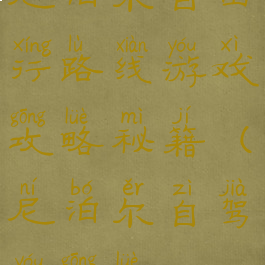 xíng lù xiàn yóu xì
行路线游戏
gōng lüè mì jí
攻略秘籍（
ní bó ěr zì jià
尼泊尔自驾